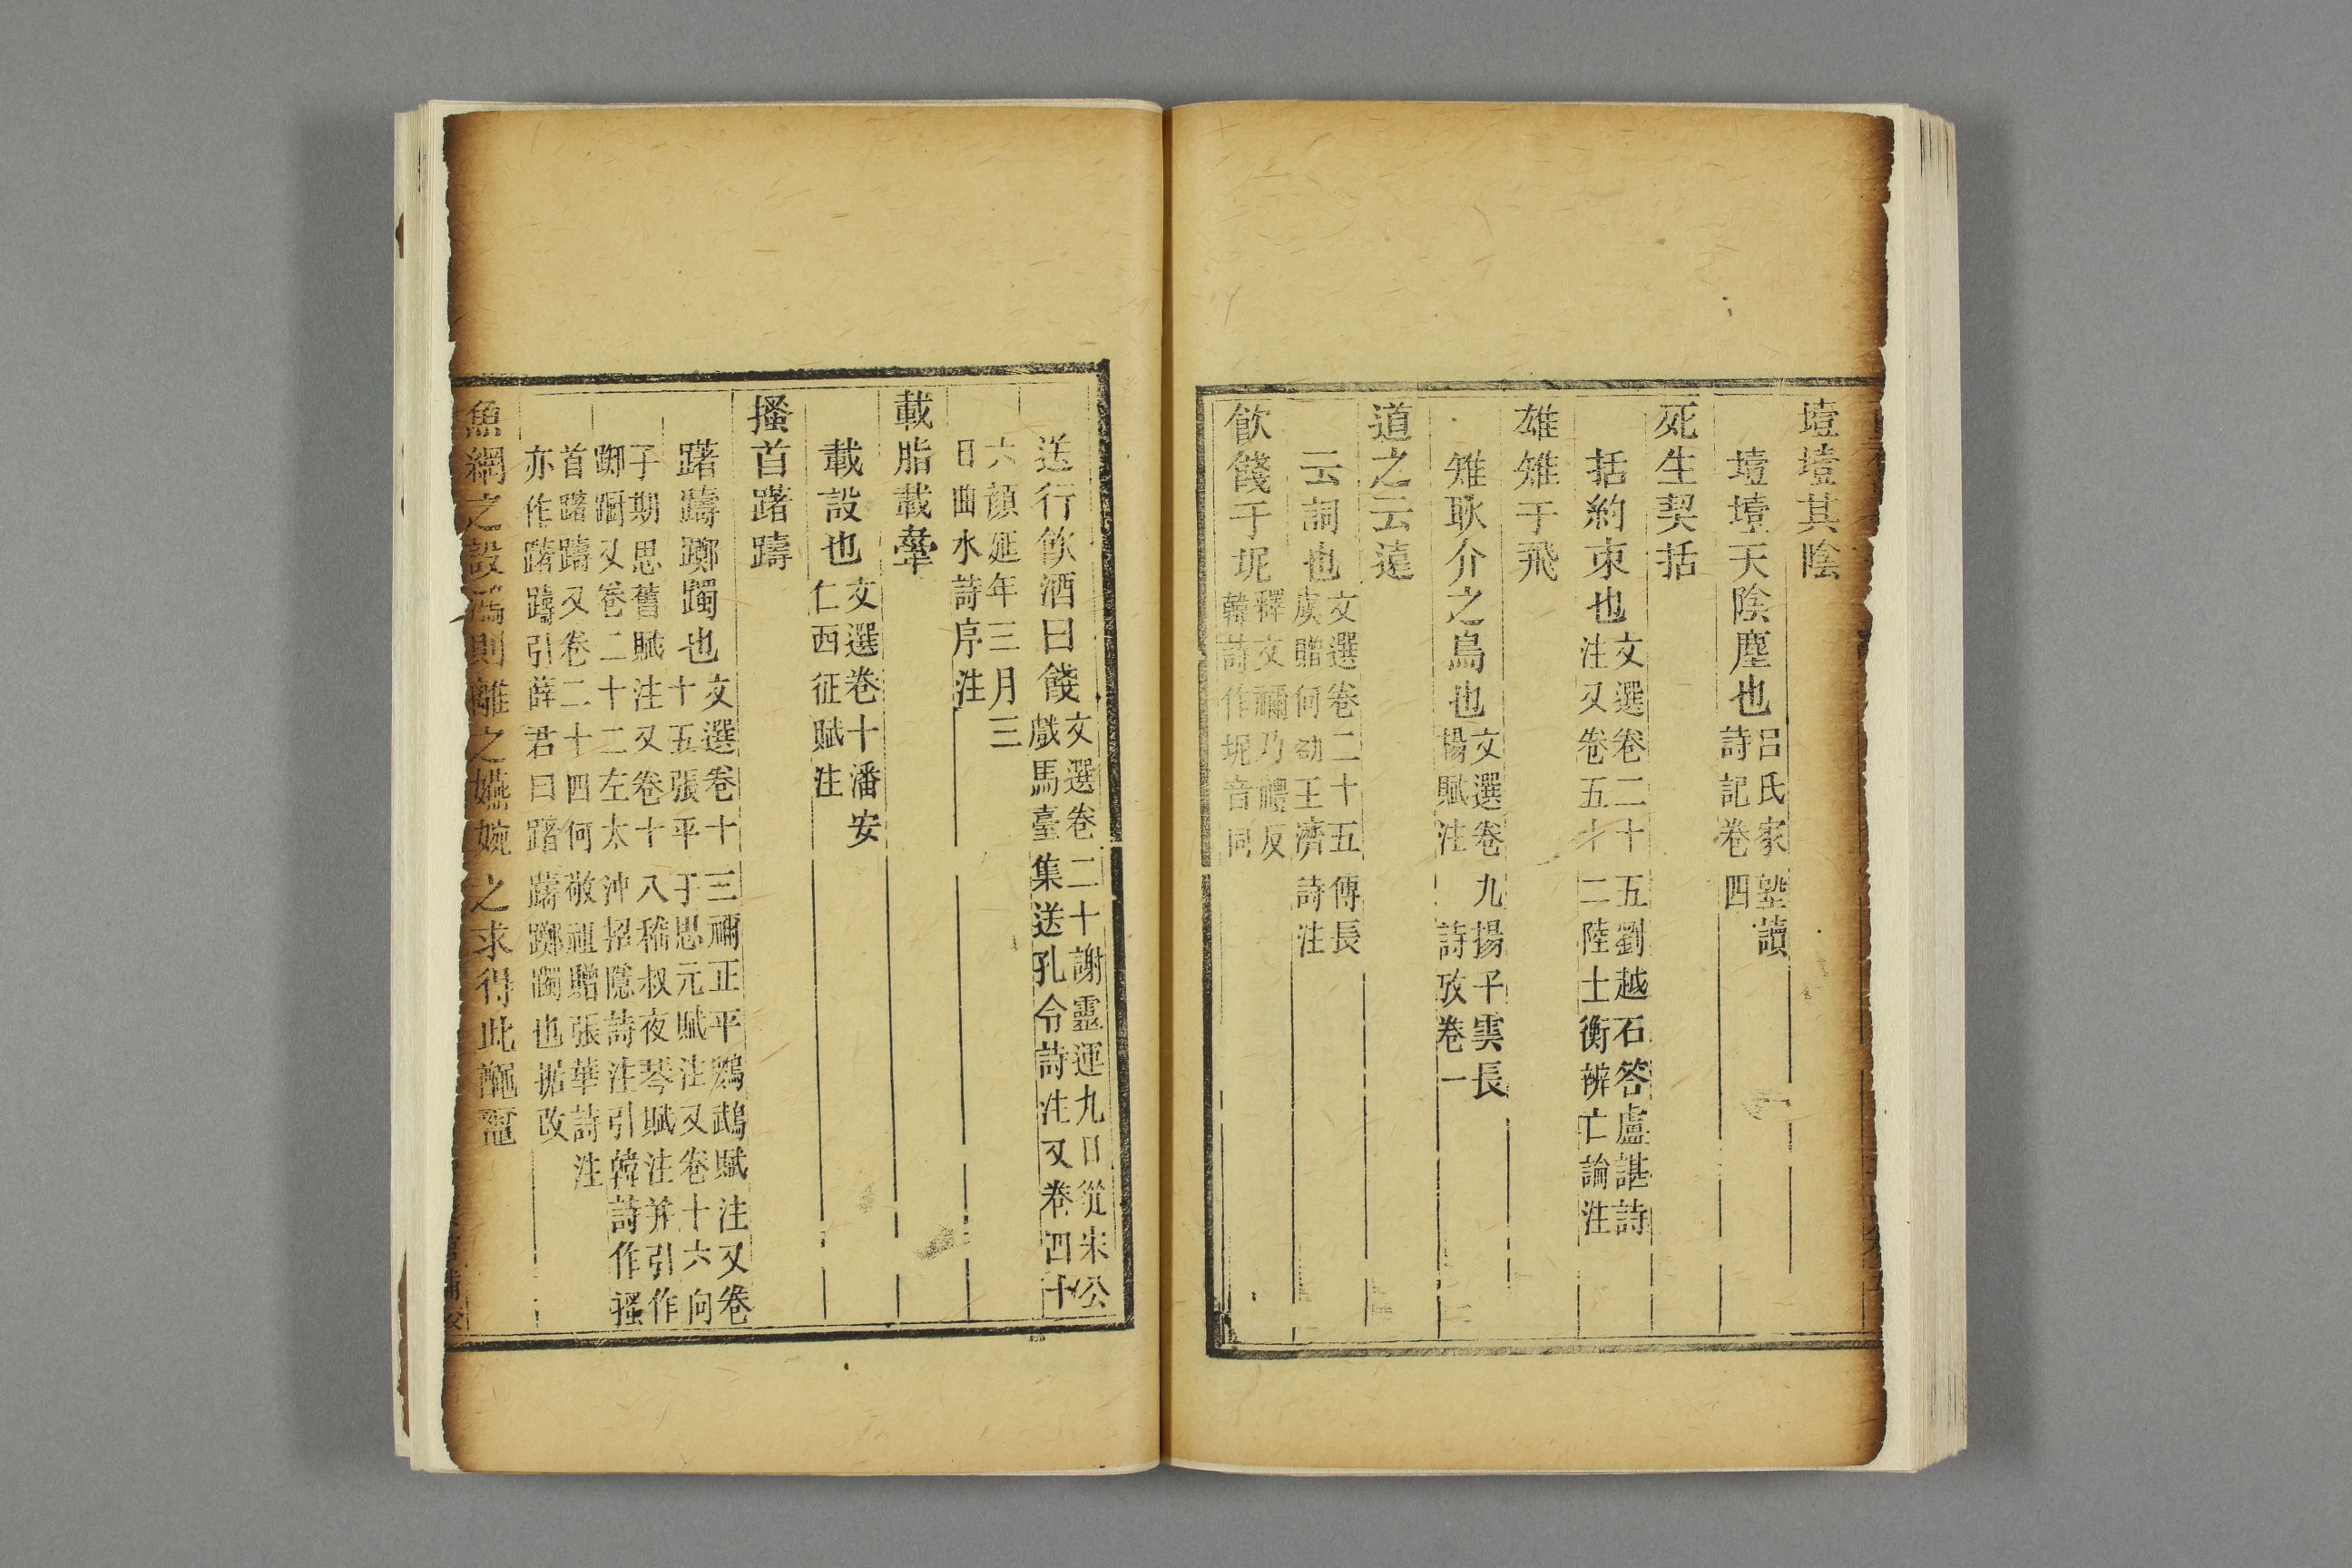 墵墵其陰
墵墵天陰塵也呂氏家塾讀
詩記卷四
死生契括
括約束也文選卷二十五劉越石答盧諶詩
注又卷五十二陸士衡辨亡論注
雄雉于飛
雉耿介之鳥也文選卷九揚子雲長
楊賦注 詩攷卷一
道之云遠
云詞也文選卷二十五傅長
虞贈何劭王濟詩注
飲餞于坭釋文禰乃禮反
韓詩作坭音同
送行飲酒曰餞文選卷二十謝靈運九日從宋公
戲馬臺集送孔令詩注又卷四十
六顏延年三月三
日曲水詩序注
載脂載舝
載設也文選卷十潘安
仁西征賦注
搔首躇躊
躇躊躑躅也文選卷十三禰正平鸚鵡賦注又卷
十五張平子思元賦注又卷十六向
子期思舊賦注又卷十八嵇叔夜琴賦注并引作
踟躕又卷二十二左太沖招隱詩注引韓詩作搔
首躇躊又卷二十四何敬祖贈張華詩注
亦作躇躊引薛君曰躇躊躑躅也據改
魚網之設鴻則離之嬿婉之求得此𪓰𪓿